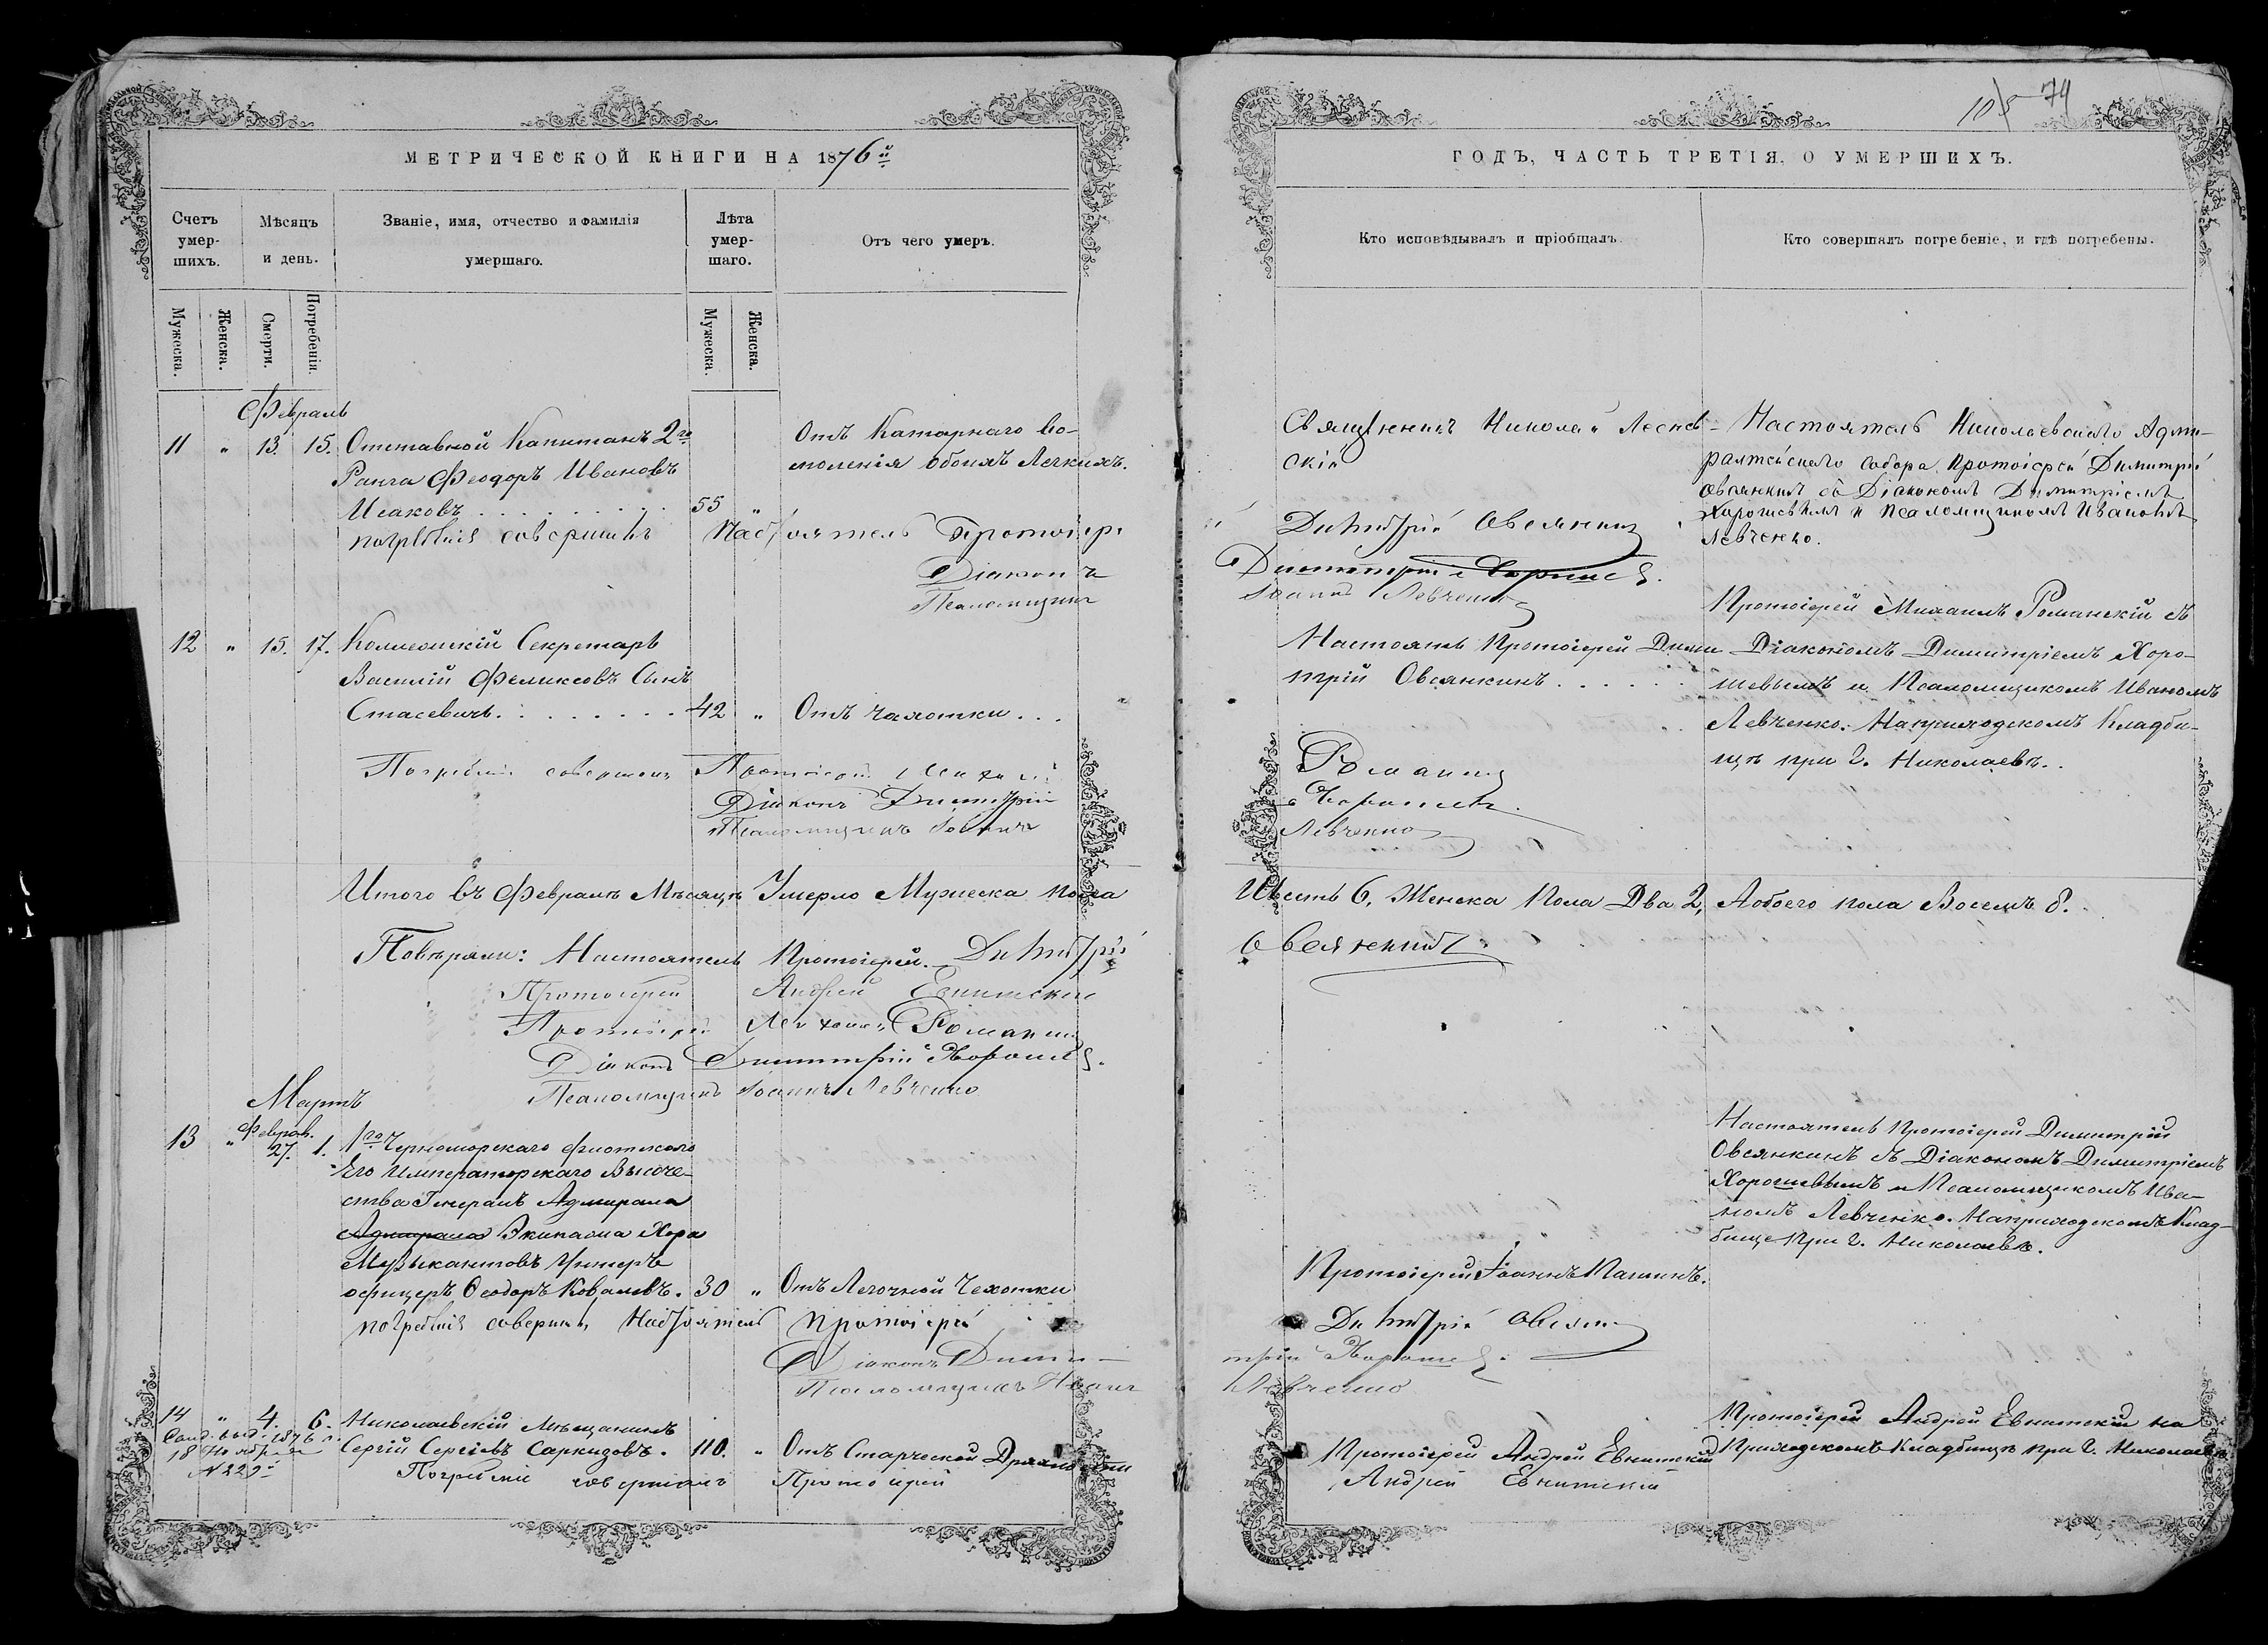 МЕТРИЧЕСКОЙ КНИГИ НА 1876й
Счетъ умер-шихъ.
Мѣсяцъ и день.
Званіе, имя, отчество и фамилія умершаго.
Лѣта умер-шаго.
Отъ чего умеръ.
Мужеска.
Женска.
Смерти.
Погребенія.
Мужеска.
Женска.
Февраль
11 " 13. 15. Отставной Капитанъ 2го
Ранга Феодоръ Ивановъ
Исаковъ 55 "
Отъ Катарнаго во-
споленія обоихъ Легкихъ.
погребеніе совершилъ Настоятель Протоіерей
Діаконъ
Псаломщикъ
12 " 15. 17. Коллежскій Секретарь
Василій Феликсовъ Сынъ
Стасевичъ 42 " Отъ чахотки
Погребеніе совершилъ Протоіерей Михаилъ
Діаконъ Димитрій
Псаломщикъ Іоаннъ
Итого въ Февралѣ Мѣсяцѣ Умерло Мужеска пола
Повѣряли: Настоятель Протоіерей Димитрій
Протоіерей Андрей Евнитскій
Протоіерей Михаилъ Романскій
Діаконъ Димитрій Хорошев
Псаломщикъ Іоаннъ Левченко
Мартъ
13 " Феврал. 27. 1. 1го Черноморскаго флотскаго
Его Императорскаго Высоче-
ства Генералъ Адмирала
Адмирала Экипажа Хора
Музыкантовъ Унтеръ
офицеръ Феодоръ Ковалевъ. 30 " Отъ Легочной Чахотки
погребеніе совершилъ Настоятель Протоіерей
Діаконъ Дими-
Псаломщикъ Іоаннъ
14 " 4. 6. Николаевскій Мѣщанинъ
Сергій Сергіевъ Саркизовъ. 110. " Отъ Старческой Дряхлости
18 Ноября
№ 229
Погребеніе совершилъ Протоіерей
105 74
ГОДЪ, ЧАСТЬ ТРЕТІЯ, О УМЕРШИХЪ.
Кто исповѣдывалъ и пріобщалъ.
Кто совершалъ погребеніе, и гдѣ погребены.
Священникъ Николай
Настоятель Николаевскаго Адми-
ралтейскаго Собора Протоіерей Димитрій
Овсянкинъ съ Діакономъ Димитріемъ
Хорошевымъ и Псаломщикомъ Иваномъ
Левченко.
Димитрій Овсянкин
Димитрій Хорошев.
Іоаннъ Левченко
Настоятель Протоіерей Дими
трій Овсянкинъ
Протоіерей Михаилъ Романскій съ
Діакономъ Димитріемъ Хоро-
шевымъ и Псаломщикомъ Иваномъ
Левченко. На приходскомъ Кладби-
щѣ при г. Николаевѣ.
Романск
Хорошев
Левченко
Шесть 6, Женска Пола Два 2, А обоего пола Восемь 8.
Овсянкинъ
Протоіерей Іоаннъ
Настоятель Протоіерей Димитрій
Овсянкинъ съ Діакономъ Димитріемъ
Хорошевымъ и Псаломщикомъ Ива-
номъ Левченко. На приходскомъ Клад-
бище При г. Николаевѣ.
Димитрій Овсянк
трій Хорошев.
Левченко
Протоіерей Андрей Евнитскій
Андрей Евнитскій
Протоіерей Андрей Евнитскій на
Приходскомъ Кладбищѣ при г. Николаевѣ